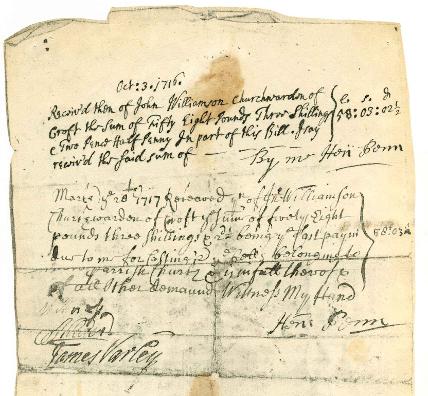 Oct: 3. 1716.
Receiv'd then of John Williamson Churchwarden of
Croft the Sum of Fifty Eight Pounds Three Shillings
& Two Pence Half Penny In part of this Bill. I say
receiv'd the said sum of
l s. d
58:03:02½
By me Hen: Penn
March ye 28th 1717 Received of Jn Williamson
Churchwarden of Croft ye Sum of Fivety Eight
pounds three shillings & 2½ being ye last payment
due to me for casting ye bells belonging to
Parrish Church & in full thereof &
all Other demaund Witness My Hand
58:03:
Hen: Penn
Witness
James Varley